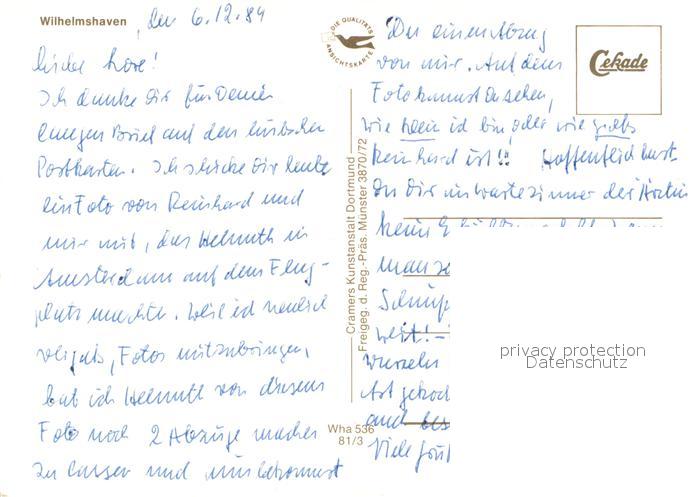 Wilhelmshaven, den 6.12.84
liebe Lore!
Ich danke Dir für Deinen
langen Brief auf den hübschen
Postkarten. Ich schicke Dir heute
ein Foto von Reinhard und
mir mit, das Helmuth in
Amsterdam auf dem Flug-
platz machte. Weil ich neulich
vergaß, Fotos mitzubringen,
bat ich Helmuth von diesem
Foto noch 2 Abzüge machen
zu lassen und nun bekommst
DIE QUALITÄTS
ANSICHTSKARTE
Cekade
Du einen Abzug
von mir. Auf dem
Foto kannst Du sehen,
wie klein ich bin, oder wie groß
Reinhard ist!! Hoffentlich hast
Du Dir im Wartezimmer der Ärztin
keine
man
Schnup
weit!-
wurzeln
Ast gekoch
auch bes
Viele Grüß
Cramers Kunstanstalt Dortmund
Freigeg. d. Reg.-Präs. Münster 3870/72
Wha 536
81/3
privacy protection
Datenschutz